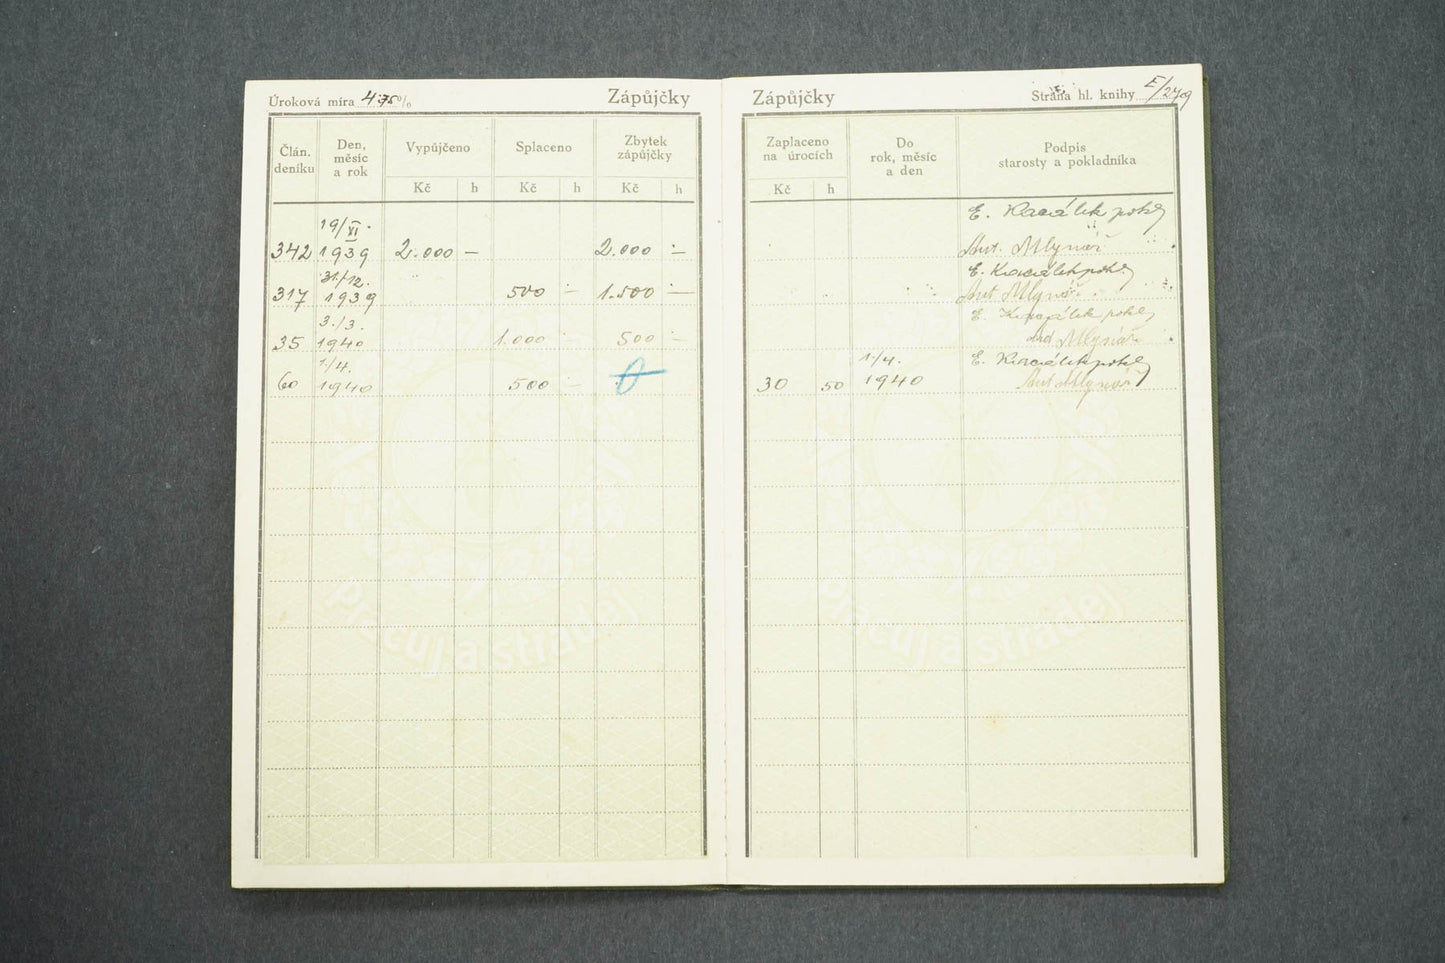 Úroková míra 4.75%
Zápůjčky
Člán. deníku
Den, měsíc a rok
Vypůjčeno
Splaceno
Zbytek zápůjčky
Kč h Kč h Kč h
19/XI.
342 1939 2.000 — 2.000 —
31./12.
317 1939 500 — 1.500 —
3./3.
35 1940 1.000 — 500 —
1/4.
60 1940 500 — 0
Pracuj a střádej
Zápůjčky
Strana hl. knihy E/2709
Zaplaceno na úrocích
Do rok, měsíc a den
Podpis starosty a pokladníka
Kč h
E. pokl
Ant. Mlynář
E. pokl
Ant Mlynář
E. pokl
Ant Mlynář
1/4. E. pokl
30 50 1940 Ant Mlynář
Pracuj a střádej